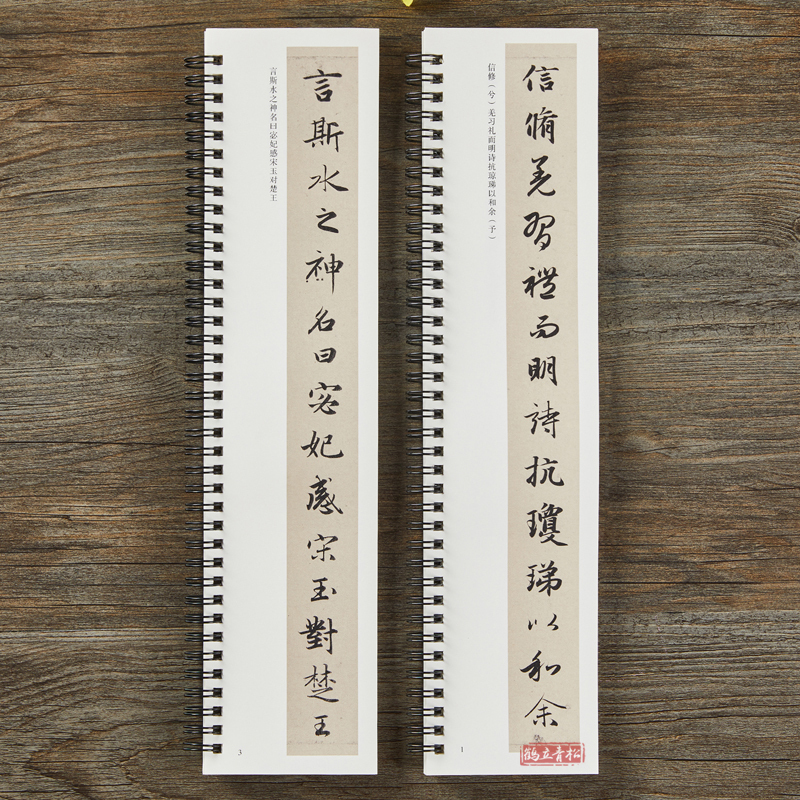 言斯水之神名曰宓妃感宋玉对楚王
言斯水之神名曰宓妃感宋玉對楚王
3
信修（兮）羌习礼而明诗抗琼珶以和余（予）
信脩羌習禮而明詩抗瓊珶以和余
1
鹤立青松